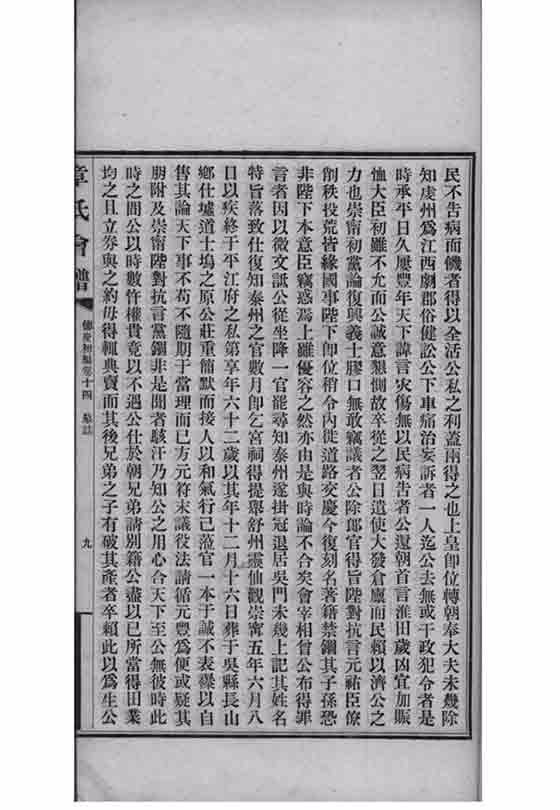 民不告病而饑者得以全活公私之利蓋兩得之也上皇卽位轉朝奉大夫未幾除
知虔州爲江西劇郡俗健訟公下車痛治妄訴者一人迄公去無或干政犯令者是
時承平日久屢豐年天下諱言灾傷無以民病告者公還朝首言淮田歲凶宜加賑
恤大臣初雖不允而公誠意懇惻故卒從之翌日遣使大發倉廩而民賴以濟公之
力也崇甯初黨論復興義士膠口無敢竊議者公除郎官得旨陛對抗言元祐臣僚
削秩投荒皆緣國事陛下卽位稍令内徙道路交慶今復刻名著籍禁錮其子孫恐
非陛下本意臣竊惑焉上雖優容之然亦由是與時論不合矣會宰相曾公布得罪
言者因以微文詆公從坐降一官罷尋知泰州遂掛冠退居吳門未幾上記其姓名
特旨落致仕復知泰州之官數月卽乞宮祠得提舉舒州靈仙觀崇甯五年六月八
日以疾終于平江府之私第享年六十二歲以其年十二月十六日葬于吳縣長山
鄉仕墟道士塢之原公莊重簡默而接人以和氣行已涖官一本于誠不表襮以自
售其論天下事不苟不隨期于當理而已方元符末議役法請循元豐爲便或疑其
朋附及崇甯陛對抗言黨錮非是聞者駭汗乃知公之用心合天下至公無彼時此
時之間公以時數忤權貴竟以不遇公仕於朝兄弟請別籍公盡以已所當得田業
均之且立券與之約毋得輒典賣而其後兄弟之子有破其產者卒賴此以爲生公
章氏會譜
德慶初編卷十四 墓誌
九